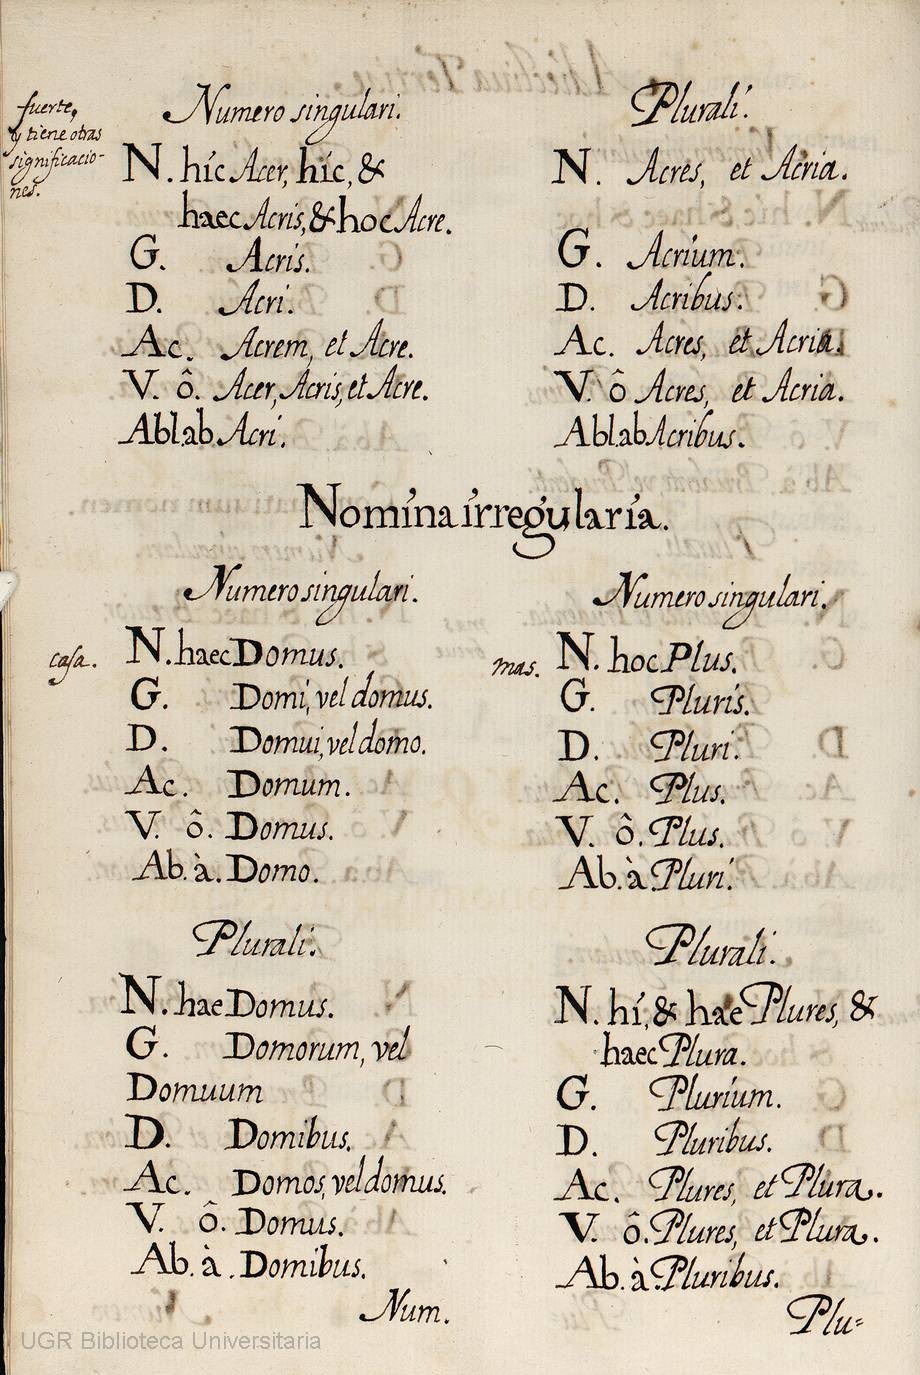 fuerte,
y tiene otras
significacio-
nes.
Numero singulari.
N. hic Acer, hic, &
haec Acris, & hoc Acre.
G. Acris.
D. Acri.
Ac. Acrem, et Acre.
V. ô. Acer, Acris, et Acre.
Abl. ab Acri.
Plurali.
N. Acres, et Acria.
G. Acrium.
D. Acribus.
Ac. Acres, et Acria.
V. ô Acres, et Acria.
Abl. ab Acribus.
Nomina irregularia.
Numero singulari.
casa.
N. haec Domus.
G. Domi, vel domus.
D. Domui, vel domo.
Ac. Domum.
V. ô. Domus.
Ab. à. Domo.
Plurali.
N. hae Domus.
G. Domorum, vel
Domuum
D. Domibus.
Ac. Domos, vel domus.
V. ô. Domus.
Ab. à. Domibus.
Num.
Numero singulari.
mas.
N. hoc Plus.
G. Pluris.
D. Pluri.
Ac. Plus.
V. ô. Plus.
Ab. à Pluri.
Plurali.
N. hi, & hae Plures, &
haec Plura.
G. Plurium.
D. Pluribus.
Ac. Plures, et Plura.
V. ô. Plures, et Plura.
Ab. à Pluribus.
Plu-
UGR Biblioteca Universitaria